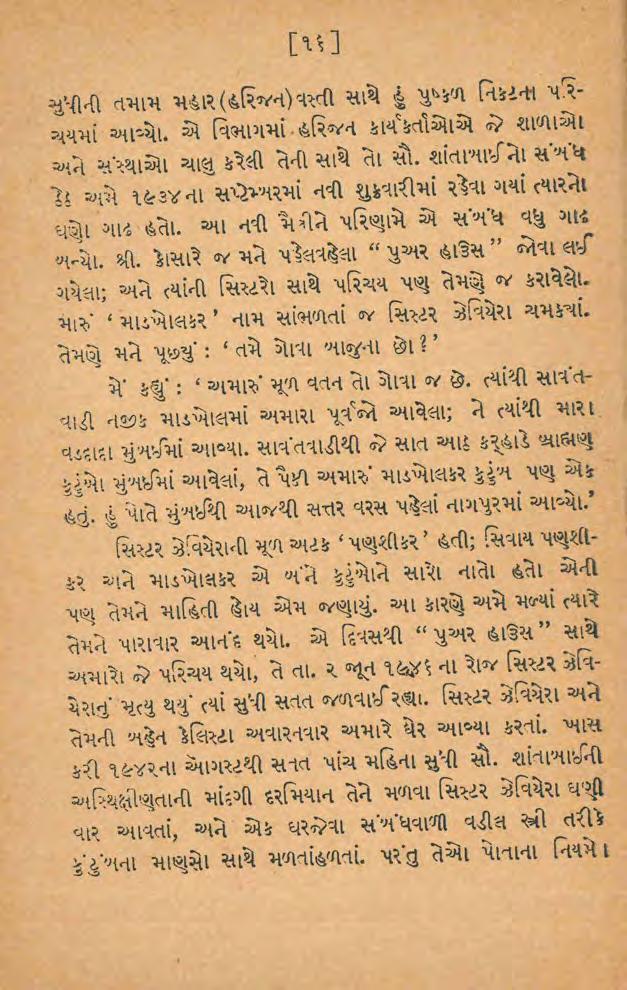 [૧૬]
સુધીની તમામ મહાર(હરિજન)વસ્તી સાથે હું પુષ્કળ નિકટના પરિ-
ચયમાં આવ્યો. એ વિભાગમાં હરિજન કાર્યકર્તાઓએ જે શાળાઓ
અને સંસ્થાઓ ચાલુ કરેલી તેની સાથે તો સૌ. શાંતાબાઈનો સંબંધ
ઠેઠ અમે ૧૯૩૪ના સપ્ટેમ્બરમાં નવી શુક્રવારીમાં રહેવા ગયાં ત્યારનો
ઘણો ગાઢ હતો. આ નવી મૈત્રીને પરિણામે એ સંબંધ વધુ ગાઢ
બન્યો. શ્રી. કોસારે જ મને પહેલવહેલા “પુઅર હાઉસ” જોવા લઈ
ગયેલા; અને ત્યાંની સિસ્ટરો સાથે પરિચય પણ તેમણે જ કરાવેલો.
મારું ‘માડખોલકર’ નામ સાંભળતાં જ સિસ્ટર ઝેવિયેરા ચમક્યાં.
તેમણે મને પૂછ્યું : ‘તમે ગોવા બાજુના છો?’
મેં કહ્યું : ‘અમારું મૂળ વતન તો ગોવા જ છે. ત્યાંથી સાવંત-
વાડી નજીક માડખોલમાં અમારા પૂર્વજો આવેલા; ને ત્યાંથી મારા
વડદાદા મુંબઈમાં આવ્યા. સાવંતવાડીથી જે સાત આઠ કર્‌હાડે બ્રાહ્મણ
કુટુંબો મુંબઈમાં આવેલાં, તે પૈકી અમારું માડખોલકર કુટુંબ પણ એક
હતું. હું પોતે મુંબઈથી આજથી સત્તર વરસ પહેલાં નાગપુરમાં આવ્યો.’
સિસ્ટર ઝેવિયેરાની મૂળ અટક ‘પણશીકર’ હતી; સિવાય પણશી-
કર અને માડખોલકર એ બંને કુટુંબોને સારો નાતો હતો એની
પણ તેમને માહિતી હોય એમ જણાયું. આ કારણે અમે મળ્યાં ત્યારે
તેમને પારાવાર આનંદ થયો. એ દિવસથી “પુઅર હાઉસ” સાથે
અમારો જે પરિચય થયો, તે તા. ૨ જૂન ૧૯૪૬ના રોજ સિસ્ટર ઝેવિ-
યેરાનું મૃત્યુ થયું ત્યાં સુધી સતત જળવાઈ રહ્યા. સિસ્ટર ઝેવિયેરા અને
તેમની બહેન કેલિસ્ટા અવારનવાર અમારે ઘેર આવ્યા કરતાં. ખાસ
કરી ૧૯૪૨ના ઑગસ્ટથી સતત પાંચ મહિના સુધી સૌ. શાંતાબાઈની
અસ્થિક્ષીણતાની માંદગી દરમિયાન તેને મળવા સિસ્ટર ઝેવિયેરા ઘણી
વાર આવતાં, અને એક ઘરજેવા સંબંધવાળી વડીલ સ્ત્રી તરીકે
કુટુંબના માણસો સાથે મળતાંહળતાં. પરંતુ તેઓ પોતાના નિયમો